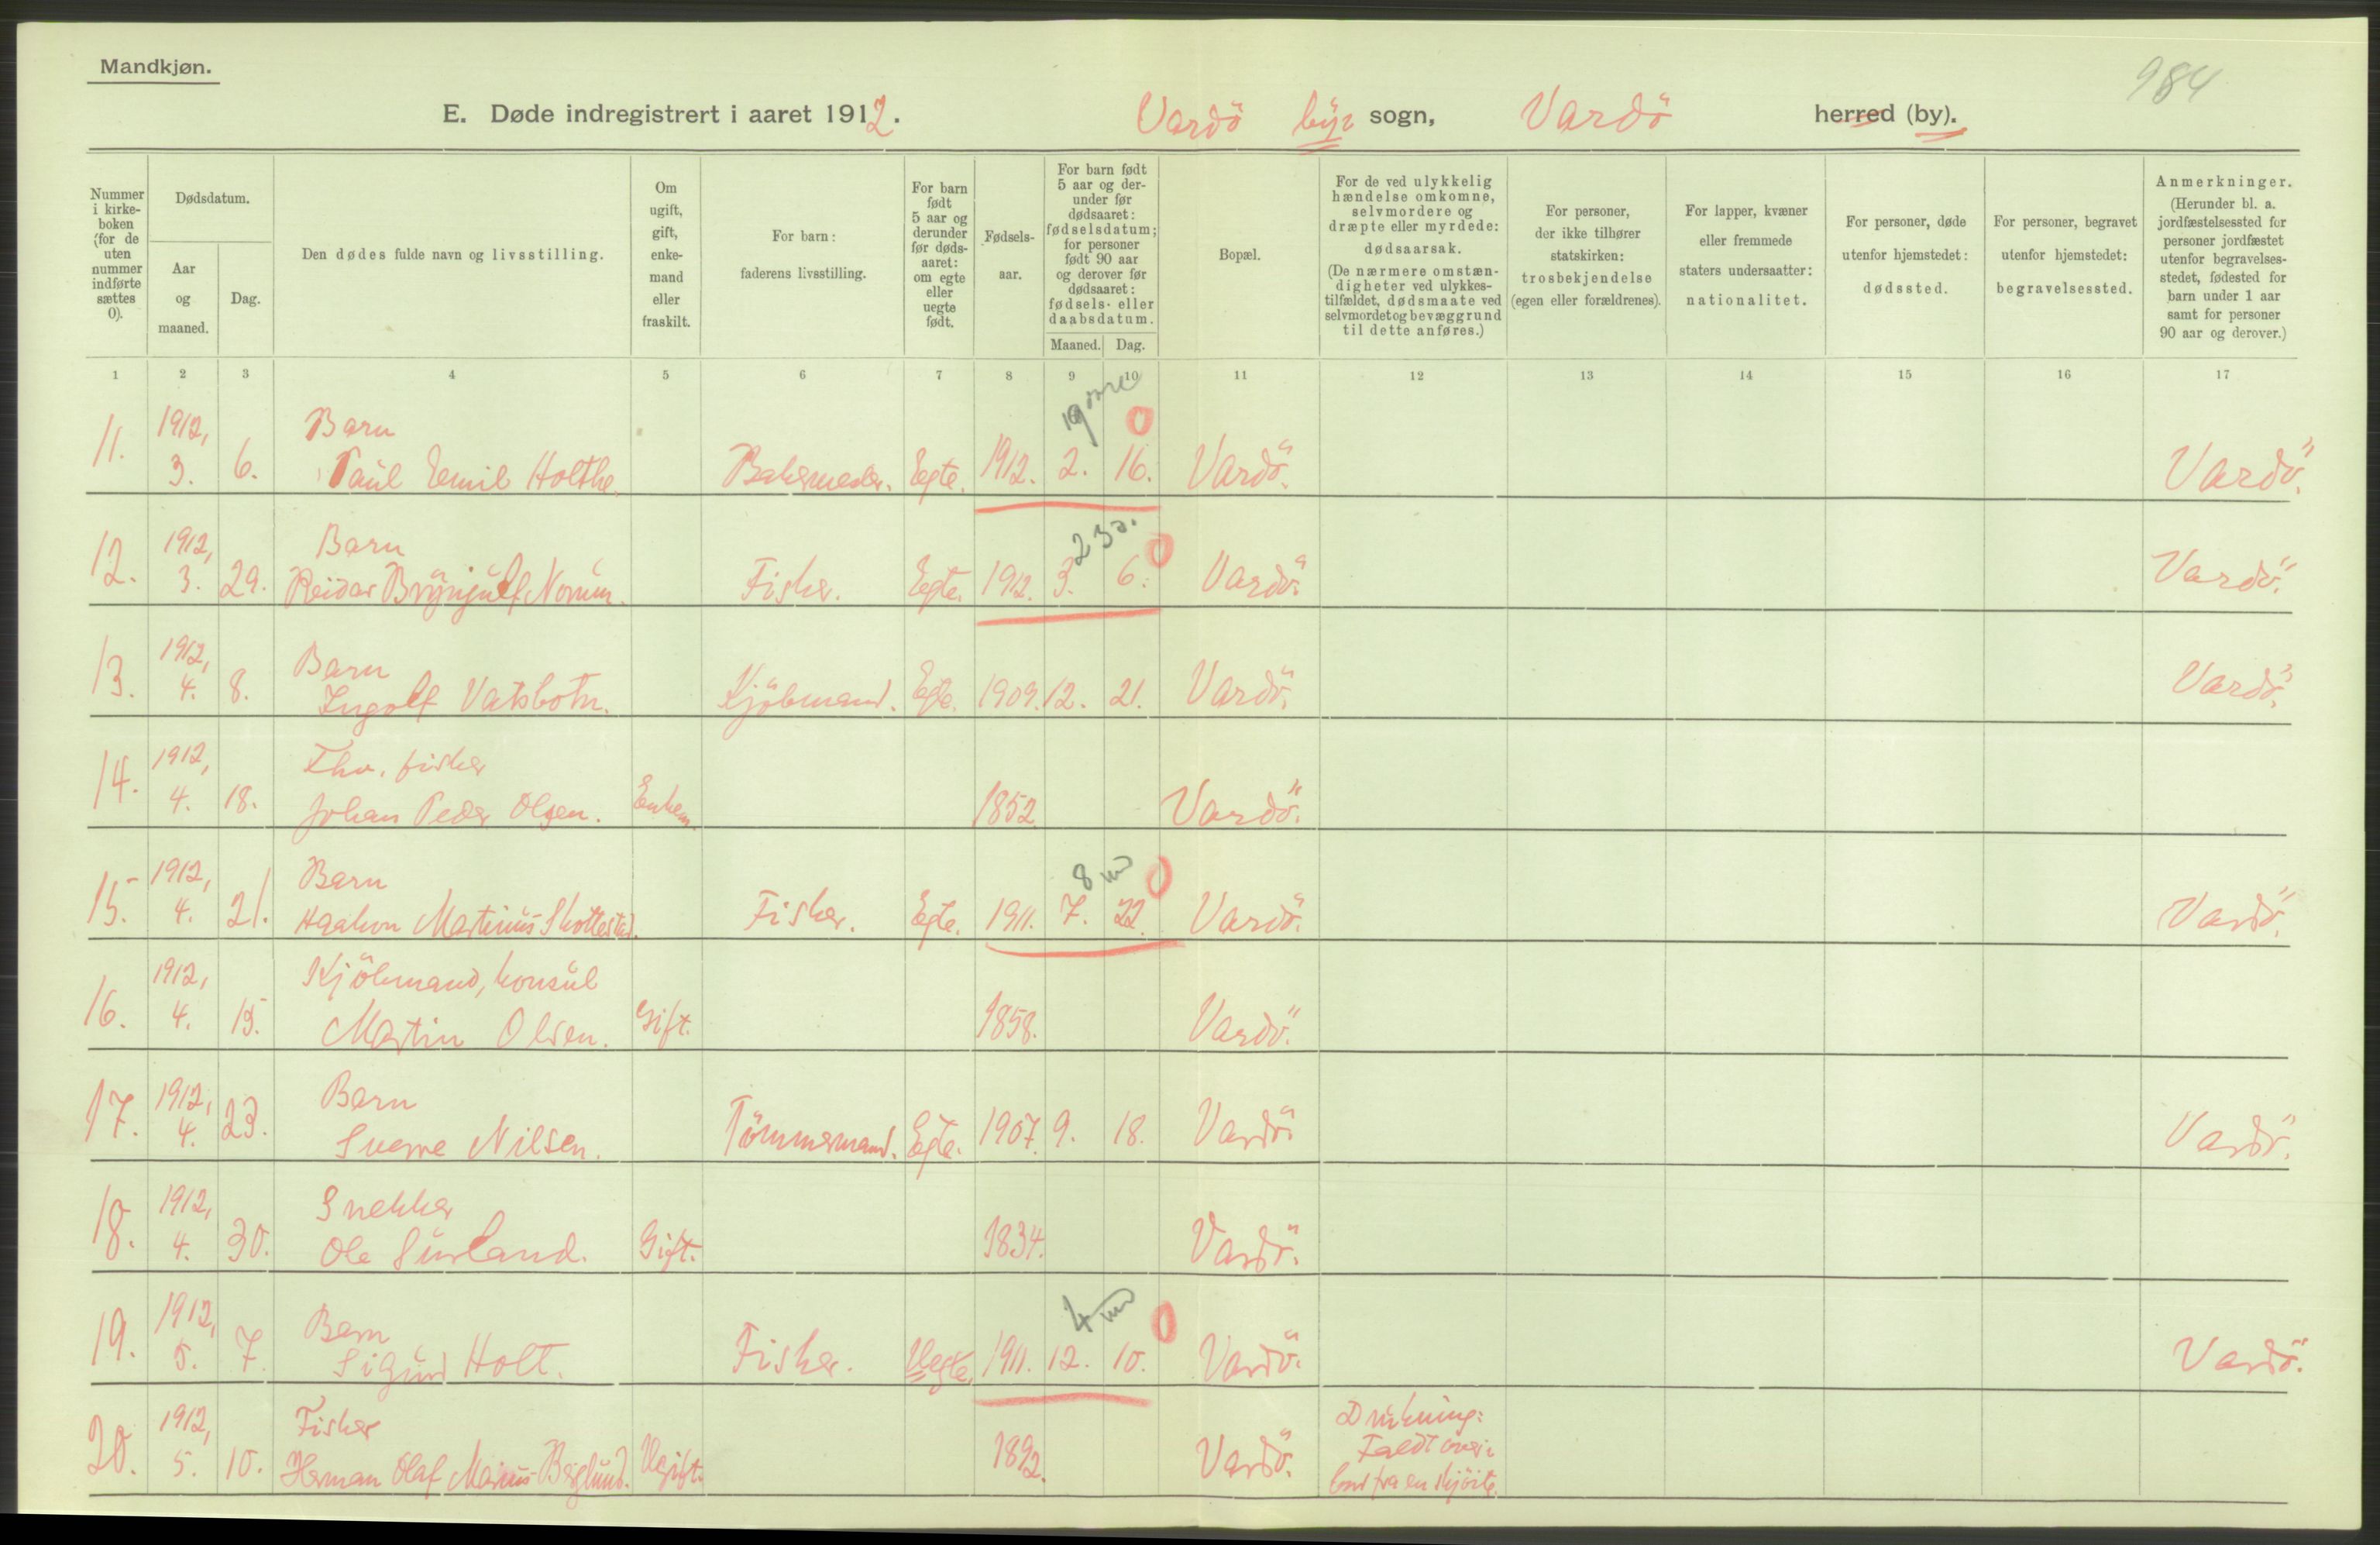 Mandkjøn.
984
E. Døde indregistrert i aaret 1912. Vardö by's sogn, Vardö herred (by).
Nummer i kirke-boken (for de uten nummer indførte sættes 0).
Dødsdatum.
Aar og maaned.
Dag.
Den dødes fulde navn og livsstilling.
Om ugift, gift, enke-mand eller fraskilt.
For barn: faderens livsstilling.
For barn født 5 aar og derunder før døds-aaret: om egte eller uegte født.
Fødsels-aar.
For barn født 5 aar og der-under før dødsaaret: fødselsdatum; for personer født 90 aar og derover før dødsaaret: fødsels- eller daabsdatum.
Maaned. Dag.
Bopæl.
For de ved ulykkelig hændelse omkomne, selvmordere og dræpte eller myrdede: dødsaarsak. (De nærmere omstæn-digheter ved ulykkes-tilfældet, dødsmaate ved selvmordet og bevæggrund til dette anføres.)
For personer, der ikke tilhører statskirken: trosbekjendelse (egen eller forældrenes).
For lapper, kvæner eller fremmede staters undersaatter: nationalitet.
For personer, døde utenfor hjemstedet: dødssted.
For personer, begravet utenfor hjemstedet: begravelsessted.
Anmerkninger. (Herunder bl. a. jordfæstelsessted for personer jordfæstet utenfor begravelses-stedet, fødested for barn under 1 aar samt for personer 90 aar og derover.)
1 2 3 4 5 6 7 8 9 10 11 12 13 14 15 16 17
1912, Barn 19 0
11. 3. 6. Paul Emil Holthe. Bakermester. Egte. 1912. 2. 16. Vardö. Vardö.
1912, Barn 23 d. 0
12. 3. 29. Reidar Brynjulf Norum. Fisker. Egte. 1912. 3. 6. Vardö. Vardö.
1912, Barn
13. 4. 8. Ingolf Vatsbotn. Kjöbmand. Egte. 1909. 12. 21. Vardö. Vardö.
1912, Fhv. fisker
14. 4. 18. Johan Peder Olsen. Enkem. 1852. Vardö.
1912, Barn 8 m 0
15. 4. 21. Haakon Martinus Skottestad. Fisker. Egte. 1911. 7. 22. Vardö. Vardö.
1912, Kjöbmand, konsul
16. 4. 15. Martin Olsen. Gift. 1858. Vardö.
1912, Barn
17. 4. 23. Sverre Nilsen. Tömmermand. Egte. 1907. 9. 18. Vardö. Vardö.
1912, Snekker
18. 4. 30. Ole Surland. Gift. 1834. Vardö.
1912, Barn 4 m 0
19. 5. 7. Sigurd Holt. Fisker. Uegte. 1911. 12. 10. Vardö. Vardö.
1912, Fisker Drukning:
20. 5. 10. Herman Olaf Marius Berglund. Ugift. 1892. Vardö. Faldt over
bord fra en skjöite.